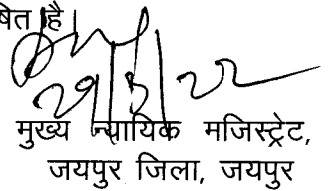 षित है।
मुख्य न्यायिक मजिस्ट्रेट,
जयपुर जिला, जयपुर